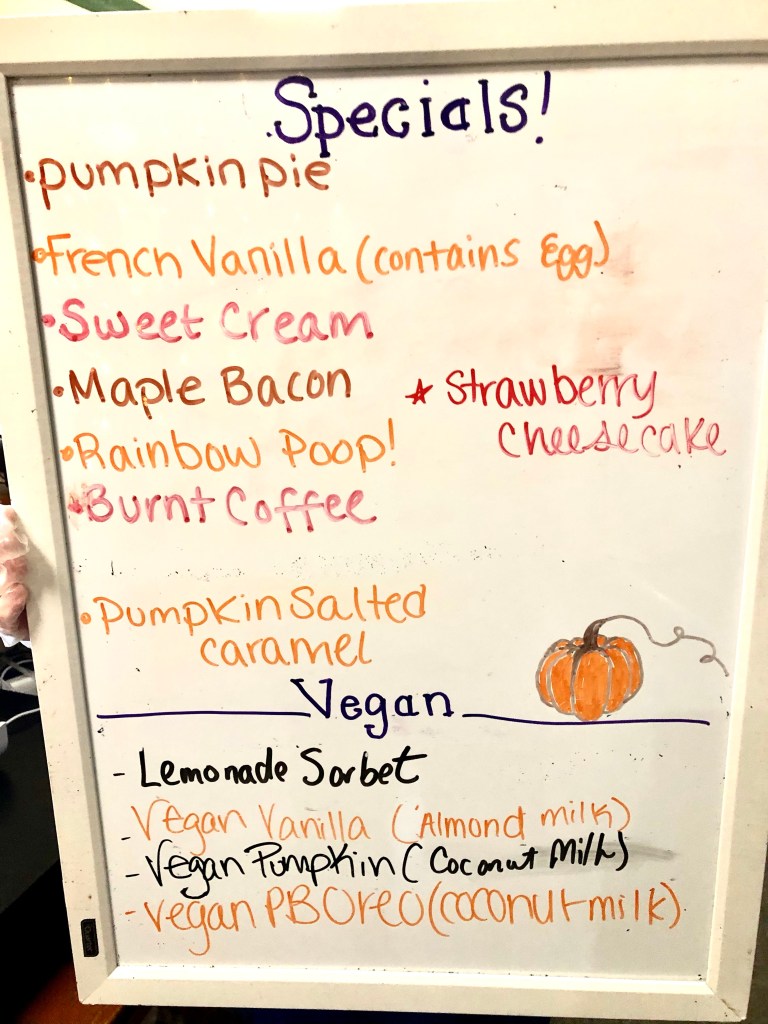 Specials!
• pumpkin pie
• French Vanilla (contains Egg)
• Sweet Cream
• Maple Bacon
★ Strawberry
Cheesecake
• Rainbow Poop!
• Burnt Coffee
• Pumpkin Salted
caramel
Vegan
- Lemonade Sorbet
- Vegan Vanilla (Almond milk)
- Vegan Pumpkin (Coconut Milk)
- Vegan PB Oreo (coconut milk)